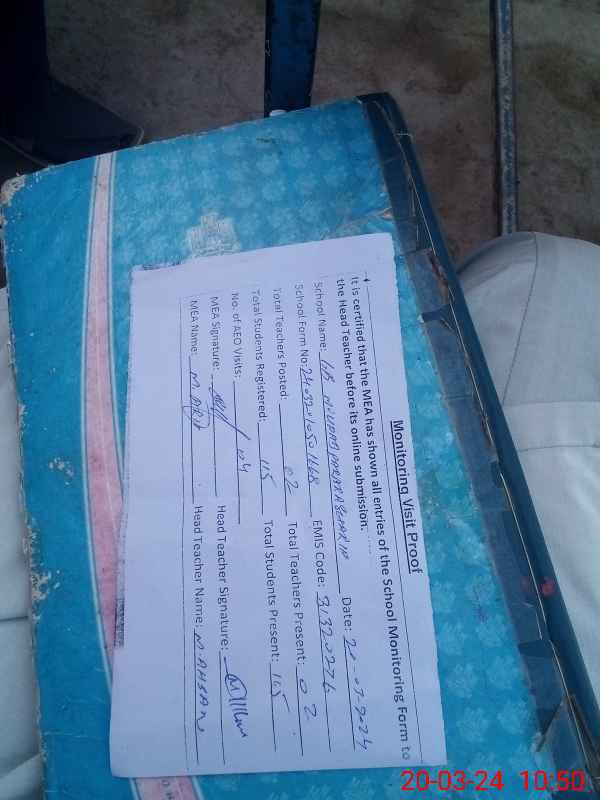 Monitoring Visit Proof
It is certified that the MEA has shown all entries of the School Monitoring Form to
the Head Teacher before its online submission.
School Name: Date:
School Form No: EMIS Code: 31320276
Total Teachers Posted: 02 Total Teachers Present: 02
Total Students Registered: 115 Total Students Present: 105
No. of AEO Visits: 04
MEA Signature: Head Teacher Signature:
MEA Name: Head Teacher Name: M. AHSAN
20-03-24 10:50